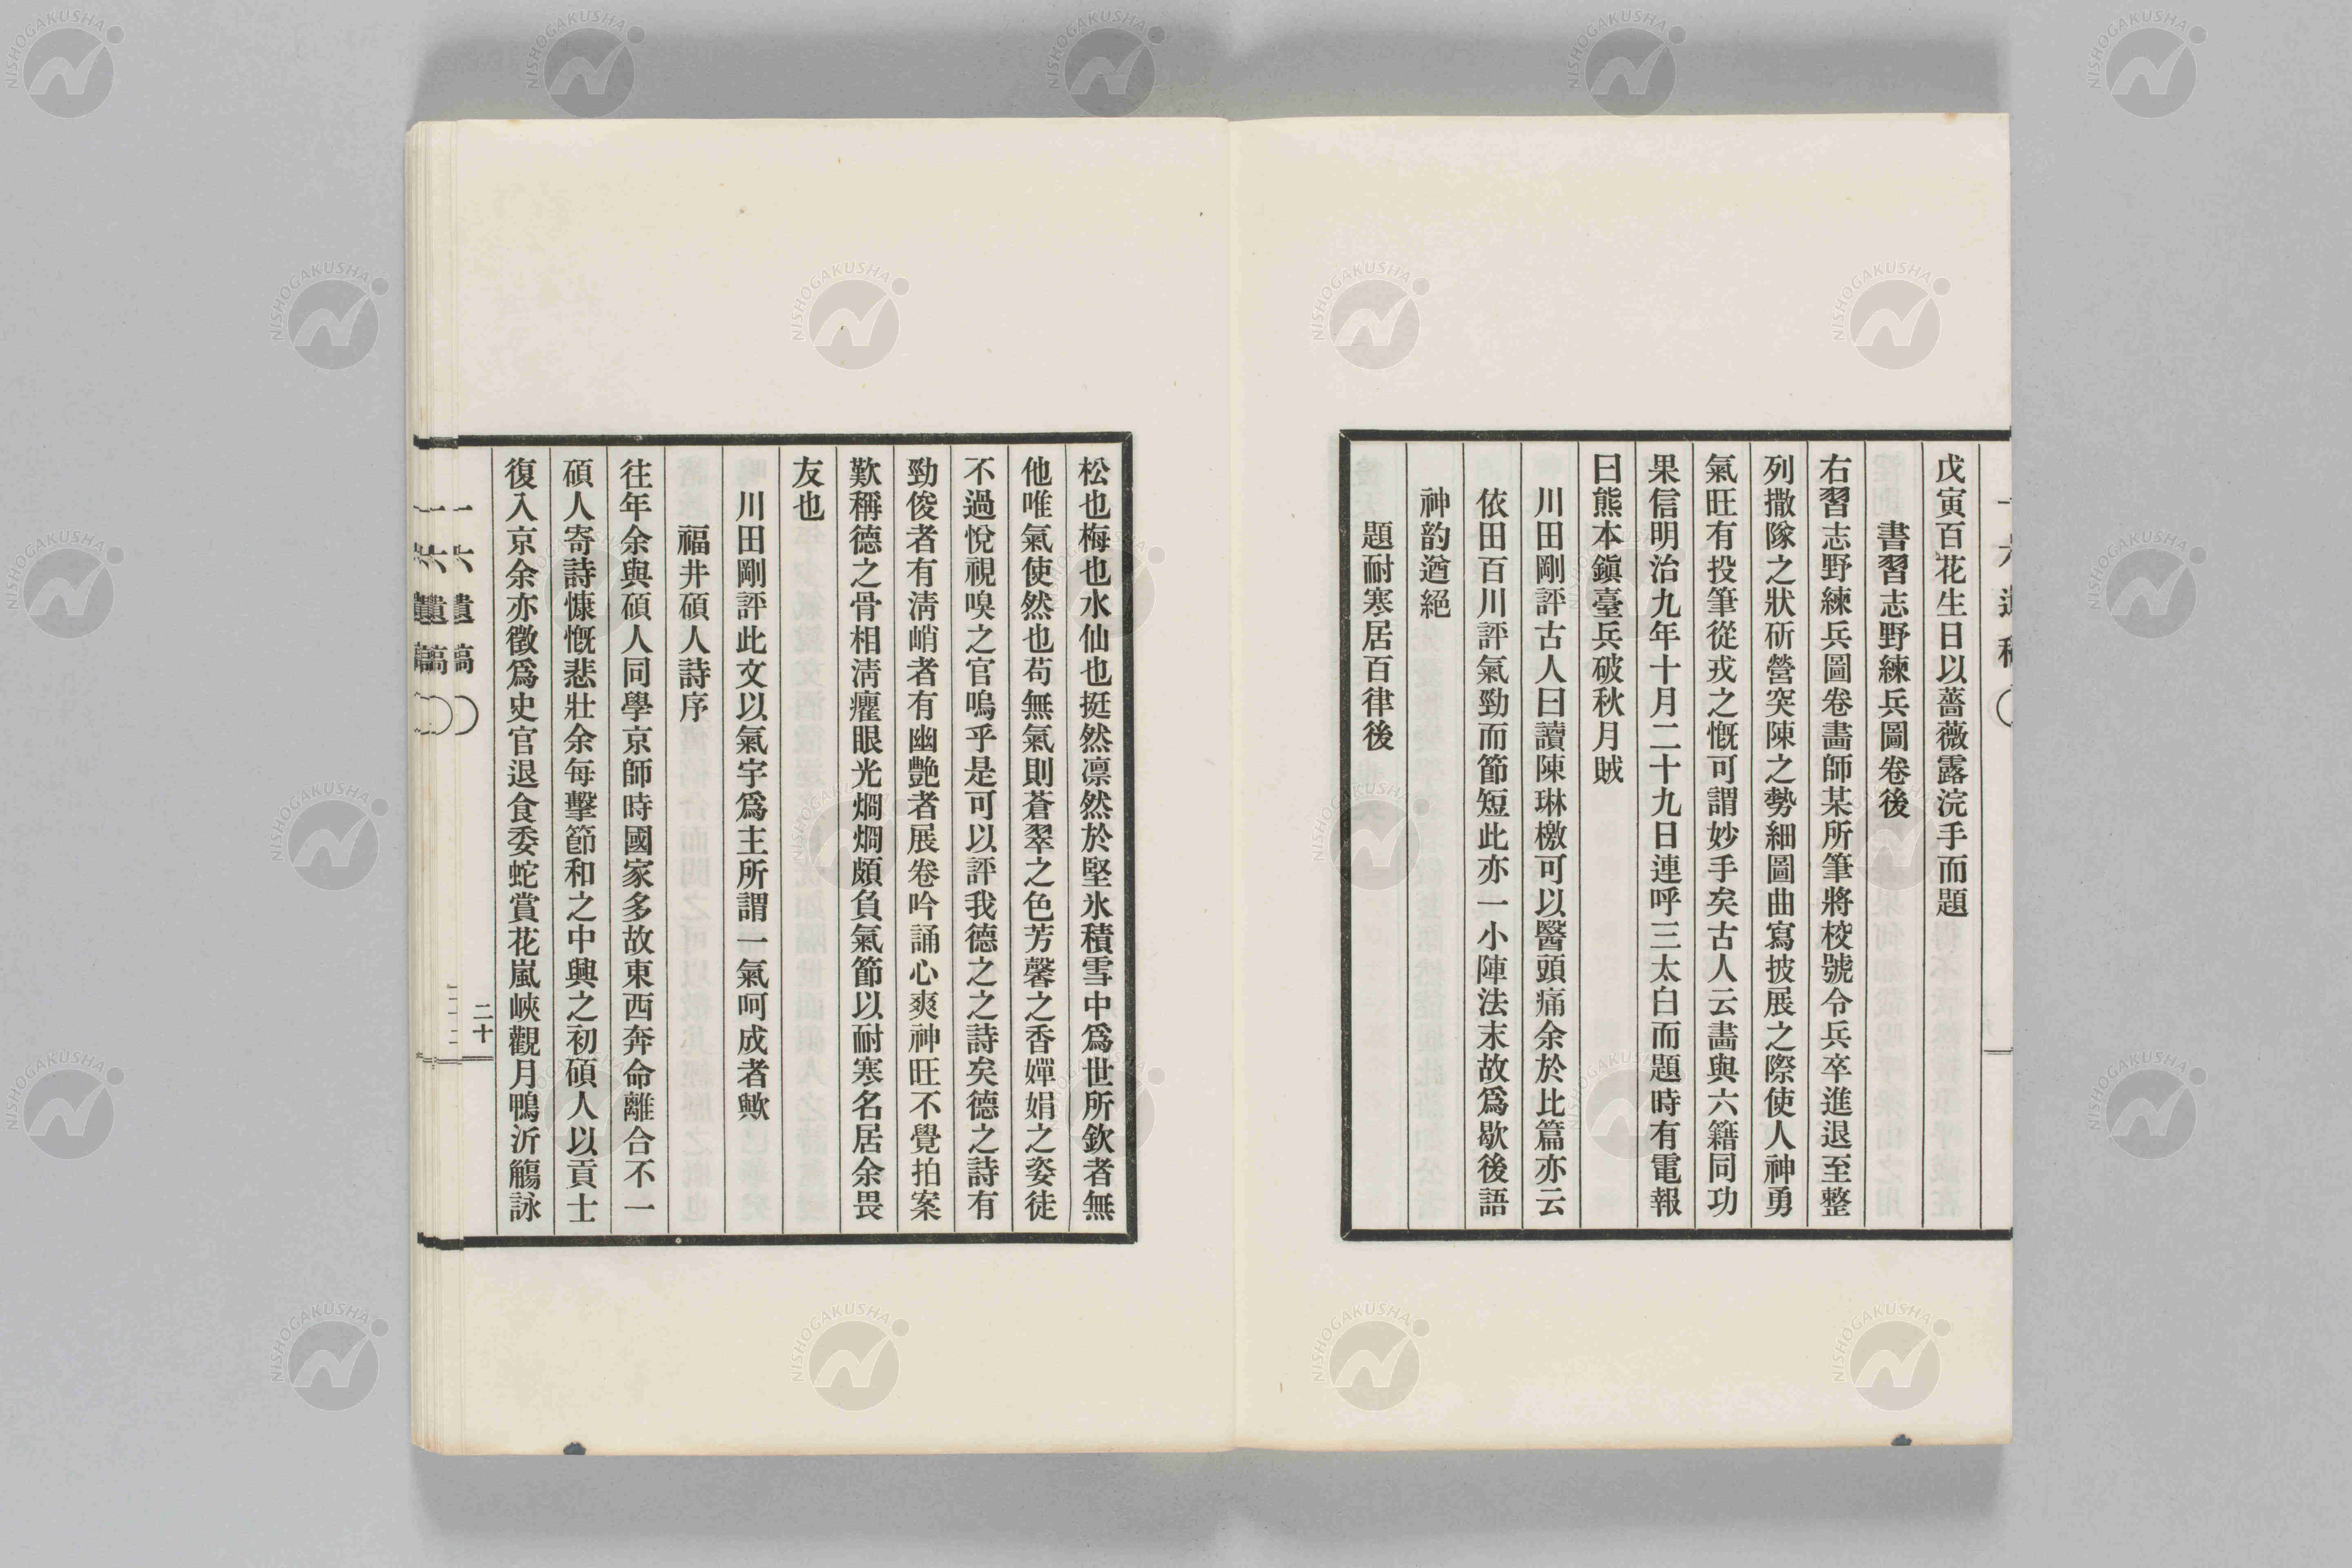 戊寅百花生日以薔薇露浣手而題
書習志野練兵圖卷後
右習志野練兵圖卷畵師某所筆將校號令兵卒進退至整
列撒隊之狀斫營突陳之勢細圖曲寫披展之際使人神勇
氣旺有投筆從戎之慨可謂妙手矣古人云畵與六籍同功
果信明治九年十月二十九日連呼三太白而題時有電報
曰熊本鎭臺兵破秋月賊
川田剛評古人曰讀陳琳檄可以醫頭痛余於比篇亦云
依田百川評氣勁而節短此亦一小陣法末故爲歇後語
神韵遒絕
題耐寒居百律後
松也梅也水仙也挺然凛然於堅氷積雪中爲世所欽者無
他唯氣使然也苟無氣則蒼翠之色芳馨之香嬋娟之姿徒
不過悅視嗅之官嗚乎是可以評我德之之詩矣德之詩有
勁俊者有淸峭者有幽艷者展卷吟誦心爽神旺不覺拍案
歎稱德之骨相淸癯眼光烱烱頗負氣節以耐寒名居余畏
友也
川田剛評此文以氣字爲主所謂一氣呵成者歟
福井碩人詩序
往年余與碩人同學京師時國家多故東西奔命離合不一
碩人寄詩慷慨悲壯余每擊節和之中興之初碩人以貢士
復入京余亦徵爲史官退食委蛇賞花嵐峽觀月鴨沂觴詠
一六遺稿
二十
NISHOGAKUSHA